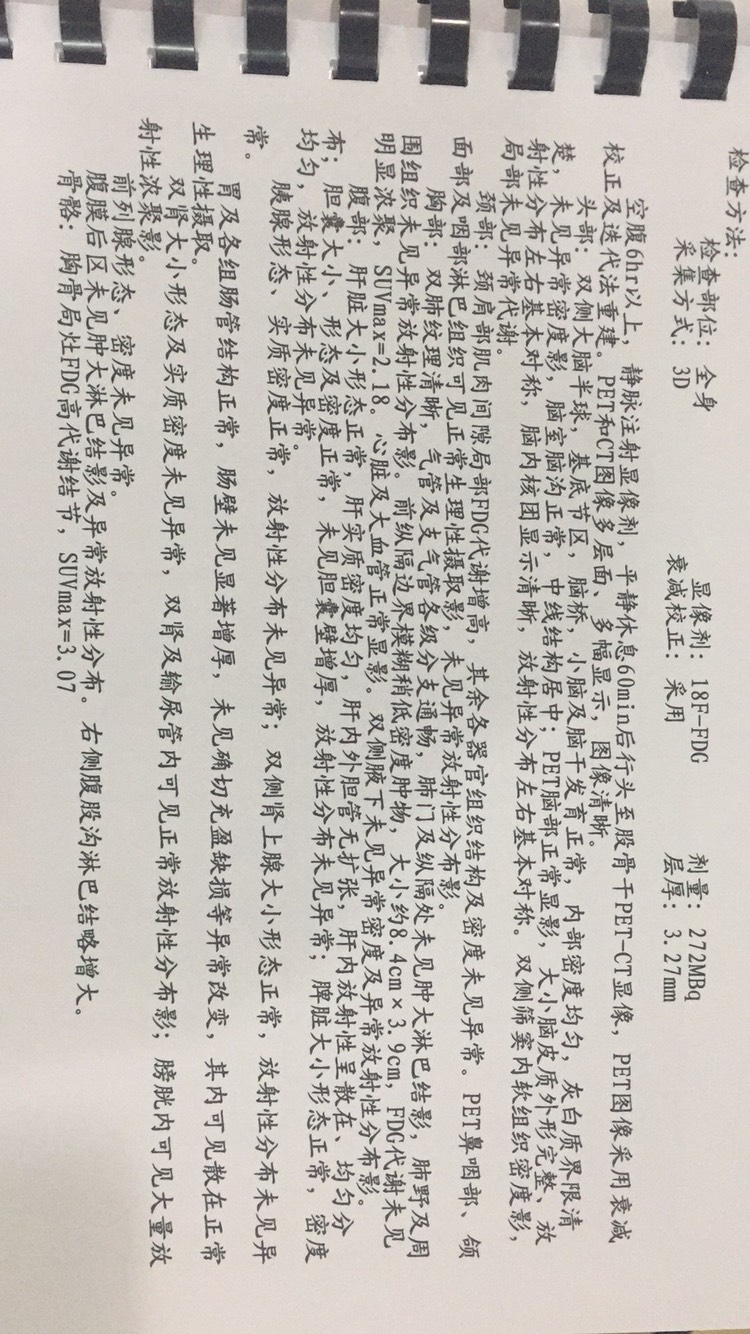 检查方法：
检查部位：全身 显像剂：18F-FDG 剂量：272MBq
采集方式：3D 衰减校正：采用 层厚：3.27mm
空腹6hr以上，静脉注射显像剂，平静休息60min后行头至股骨干PET-CT显像，PET图像采用衰减
校正及迭代法重建。PET和CT图像多层面、多幅显示，图像清晰。
头部：双侧大脑半球，基底节区，脑桥，小脑及脑干发育正常，内部密度均匀，灰白质界限清
楚，未见异常密度影，脑室脑沟正常，中线结构居中；PET脑部正常显影，大小脑皮质外形完整、放
射性分布左右基本对称，脑内核团显示清晰，放射性分布左右基本对称。双侧筛窦内软组织密度影，
局部未见异常代谢。
颈部：颈肩部肌肉间隙局部FDG代谢增高，其余各器官组织结构及密度未见异常。PET鼻咽部、颌
面部及咽部淋巴组织可见正常生理性摄取影，未见异常放射性分布影。
胸部：双肺纹理清晰，气管及支气管各级分支通畅，肺门及纵隔处未见肿大淋巴结影，肺野及周
围组织未见异常放射性分布影。前纵隔边界模糊稍低密度肿物，大小约8.4cm×3.9cm，FDG代谢未见
明显浓聚，SUVmax=2.18。心脏及大血管正常显影。双侧腋下未见异常密度及异常放射性分布影。
腹部：肝脏大小形态正常，肝实质密度均匀，肝内外胆管无扩张，肝内放射性呈散在、均匀分
布；胆囊大小、形态及密度正常，未见胆囊壁增厚，放射性分布未见异常；脾脏大小形态正常，密度
均匀，放射性分布未见异常。
胰腺形态、实质密度正常，放射性分布未见异常；双侧肾上腺大小形态正常，放射性分布未见异
常。
胃及各组肠管结构正常，肠壁未见显著增厚，未见确切充盈缺损等异常改变，其内可见散在正常
生理性摄取。
双肾大小形态及实质密度未见异常，双肾及输尿管内可见正常放射性分布影；膀胱内可见大量放
射性浓聚影。
前列腺形态、密度未见异常。
腹膜后区未见肿大淋巴结影及异常放射性分布。右侧腹股沟淋巴结略增大。
骨骼：胸骨局灶FDG高代谢结节，SUVmax=3.07